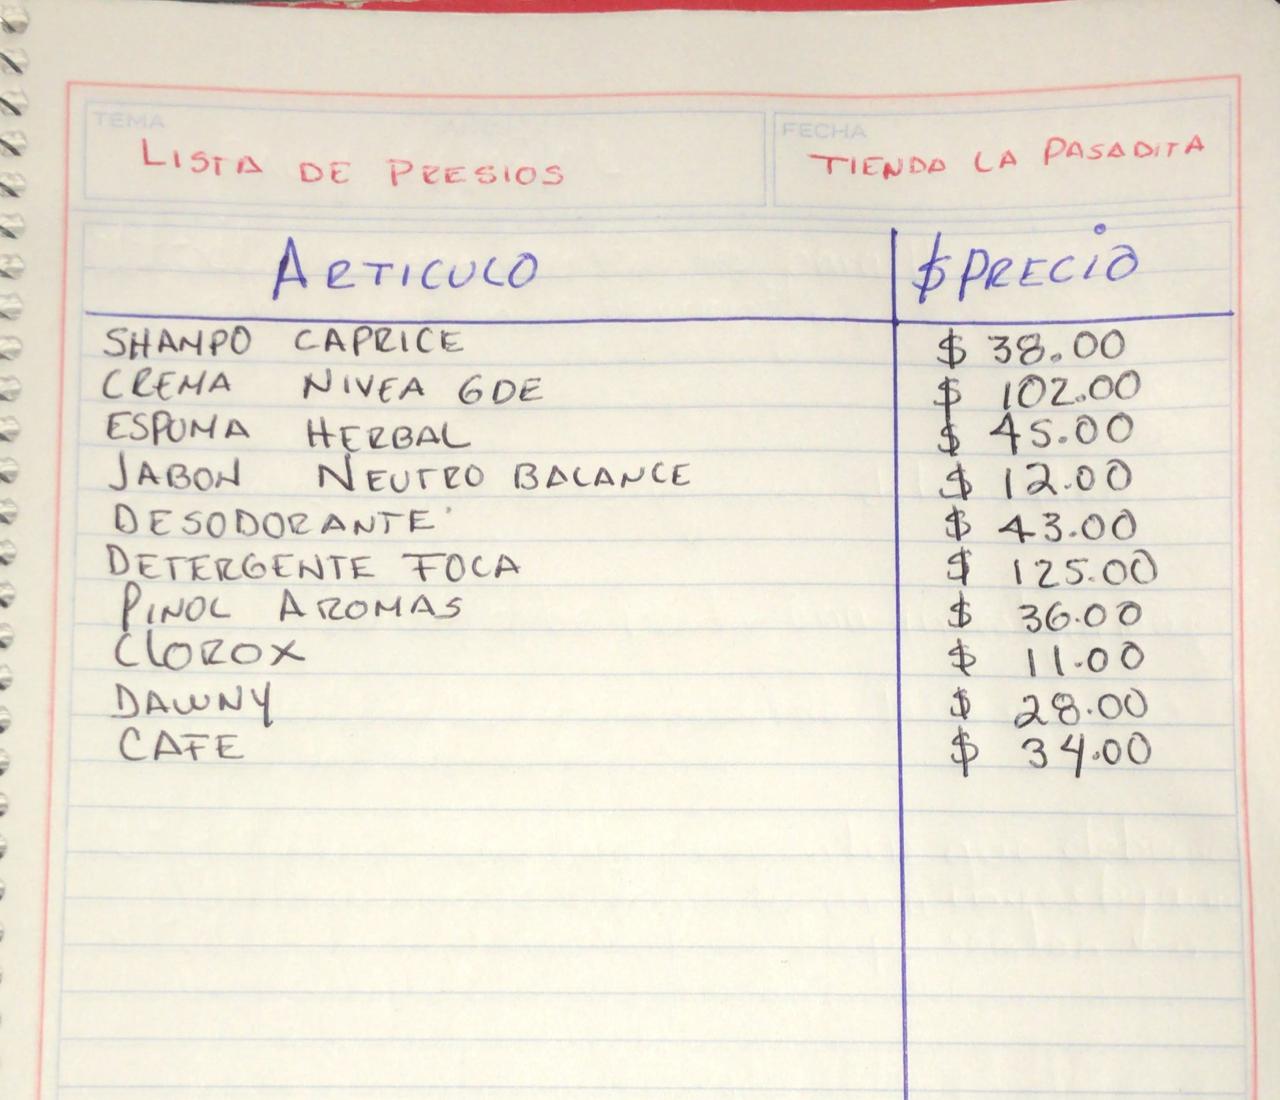 TEMA
FECHA
LISTA DE PRESIOS
TIENDA LA PASADITA
ARTICULO $ PRECIO
SHAMPO CAPRICE $ 38.00
CREMA NIVEA GDE $ 102.00
ESPUMA HERBAL $ 45.00
JABON NEUTRO BALANCE $ 12.00
DESODORANTE $ 43.00
DETERGENTE FOCA $ 125.00
PINOL AROMAS $ 36.00
CLOROX $ 11.00
DAWNY $ 28.00
CAFE $ 34.00